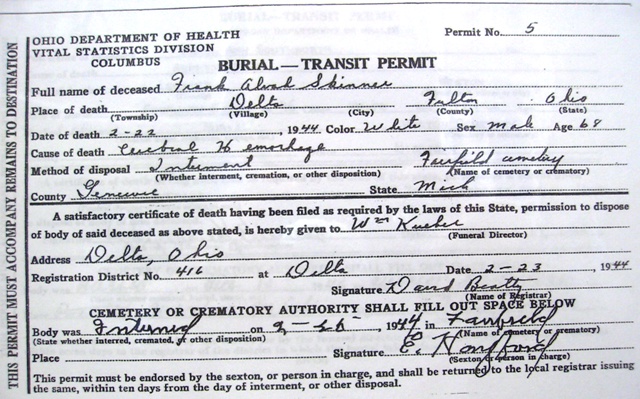 Permit No. 5
OHIO DEPARTMENT OF HEALTH
VITAL STATISTICS DIVISION
COLUMBUS
BURIAL—TRANSIT PERMIT
THIS PERMIT MUST ACCOMPANY REMAINS TO DESTINATION
Full name of deceased Frank Alvah Skinner
Place of death Delta Fulton Ohio
(Township) (Village) (City) (County) (State)
Date of death 2-22, 1944 Color White Sex Male Age 68
Cause of death Cerebral Hemorhage
Method of disposal Interment Fairfield cemetery
(Whether interment, cremation, or other disposition) (Name of cemetery or crematory)
County Genessee State Mich
A satisfactory certificate of death having been filed as required by the laws of this State, permission to dispose
of body of said deceased as above stated, is hereby given to Wm
(Funeral Director)
Address Delta, Ohio
Registration District No. 416 at Delta Date 2-23 1944
Signature David Beatty
(Name of Registrar)
CEMETERY OR CREMATORY AUTHORITY SHALL FILL OUT SPACE BELOW
Body was Interred on 2-26, 1944 in Fairfield
(State whether interred, cremated, or other disposition) (Name of cemetery or crematory)
Place Signature E.
(Sexton or person in charge)
This permit must be endorsed by the sexton, or person in charge, and shall be returned to the local registrar issuing
the same, within ten days from the day of interment, or other disposal.